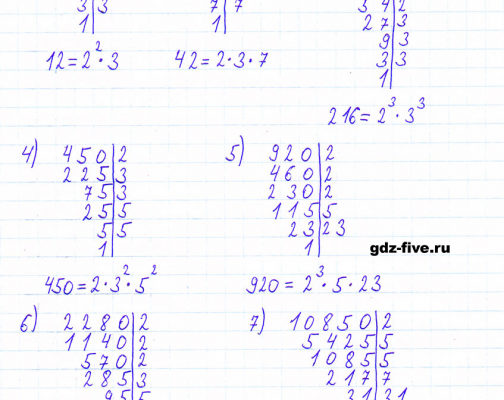 3|3 7|7 54|2
1| 1| 27|3
9|3
3|3
1|
12=2²·3 42=2·3·7
216=2³·3³
4) 450|2 5) 920|2
225|3 460|2
75|3 230|2
25|5 115|5
5|5 23|23
1| 1|
gdz-five.ru
450=2·3²·5² 920=2³·5·23
6) 2280|2 7) 10850|2
1140|2 5425|5
570|2 1085|5
285|3 217|7
95|5 31|31